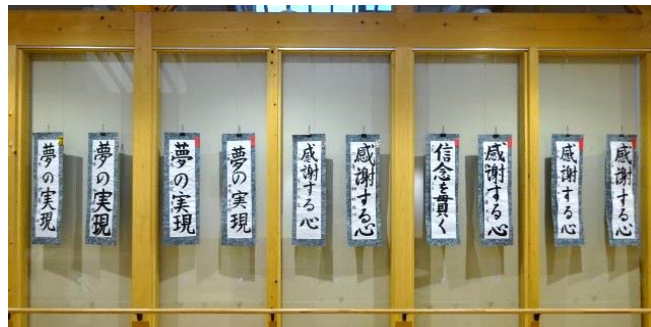 夢の実現
夢の実現
夢の実現
夢の実現
感謝する心
感謝する心
信念を貫く
感謝する心
感謝する心
感謝する心